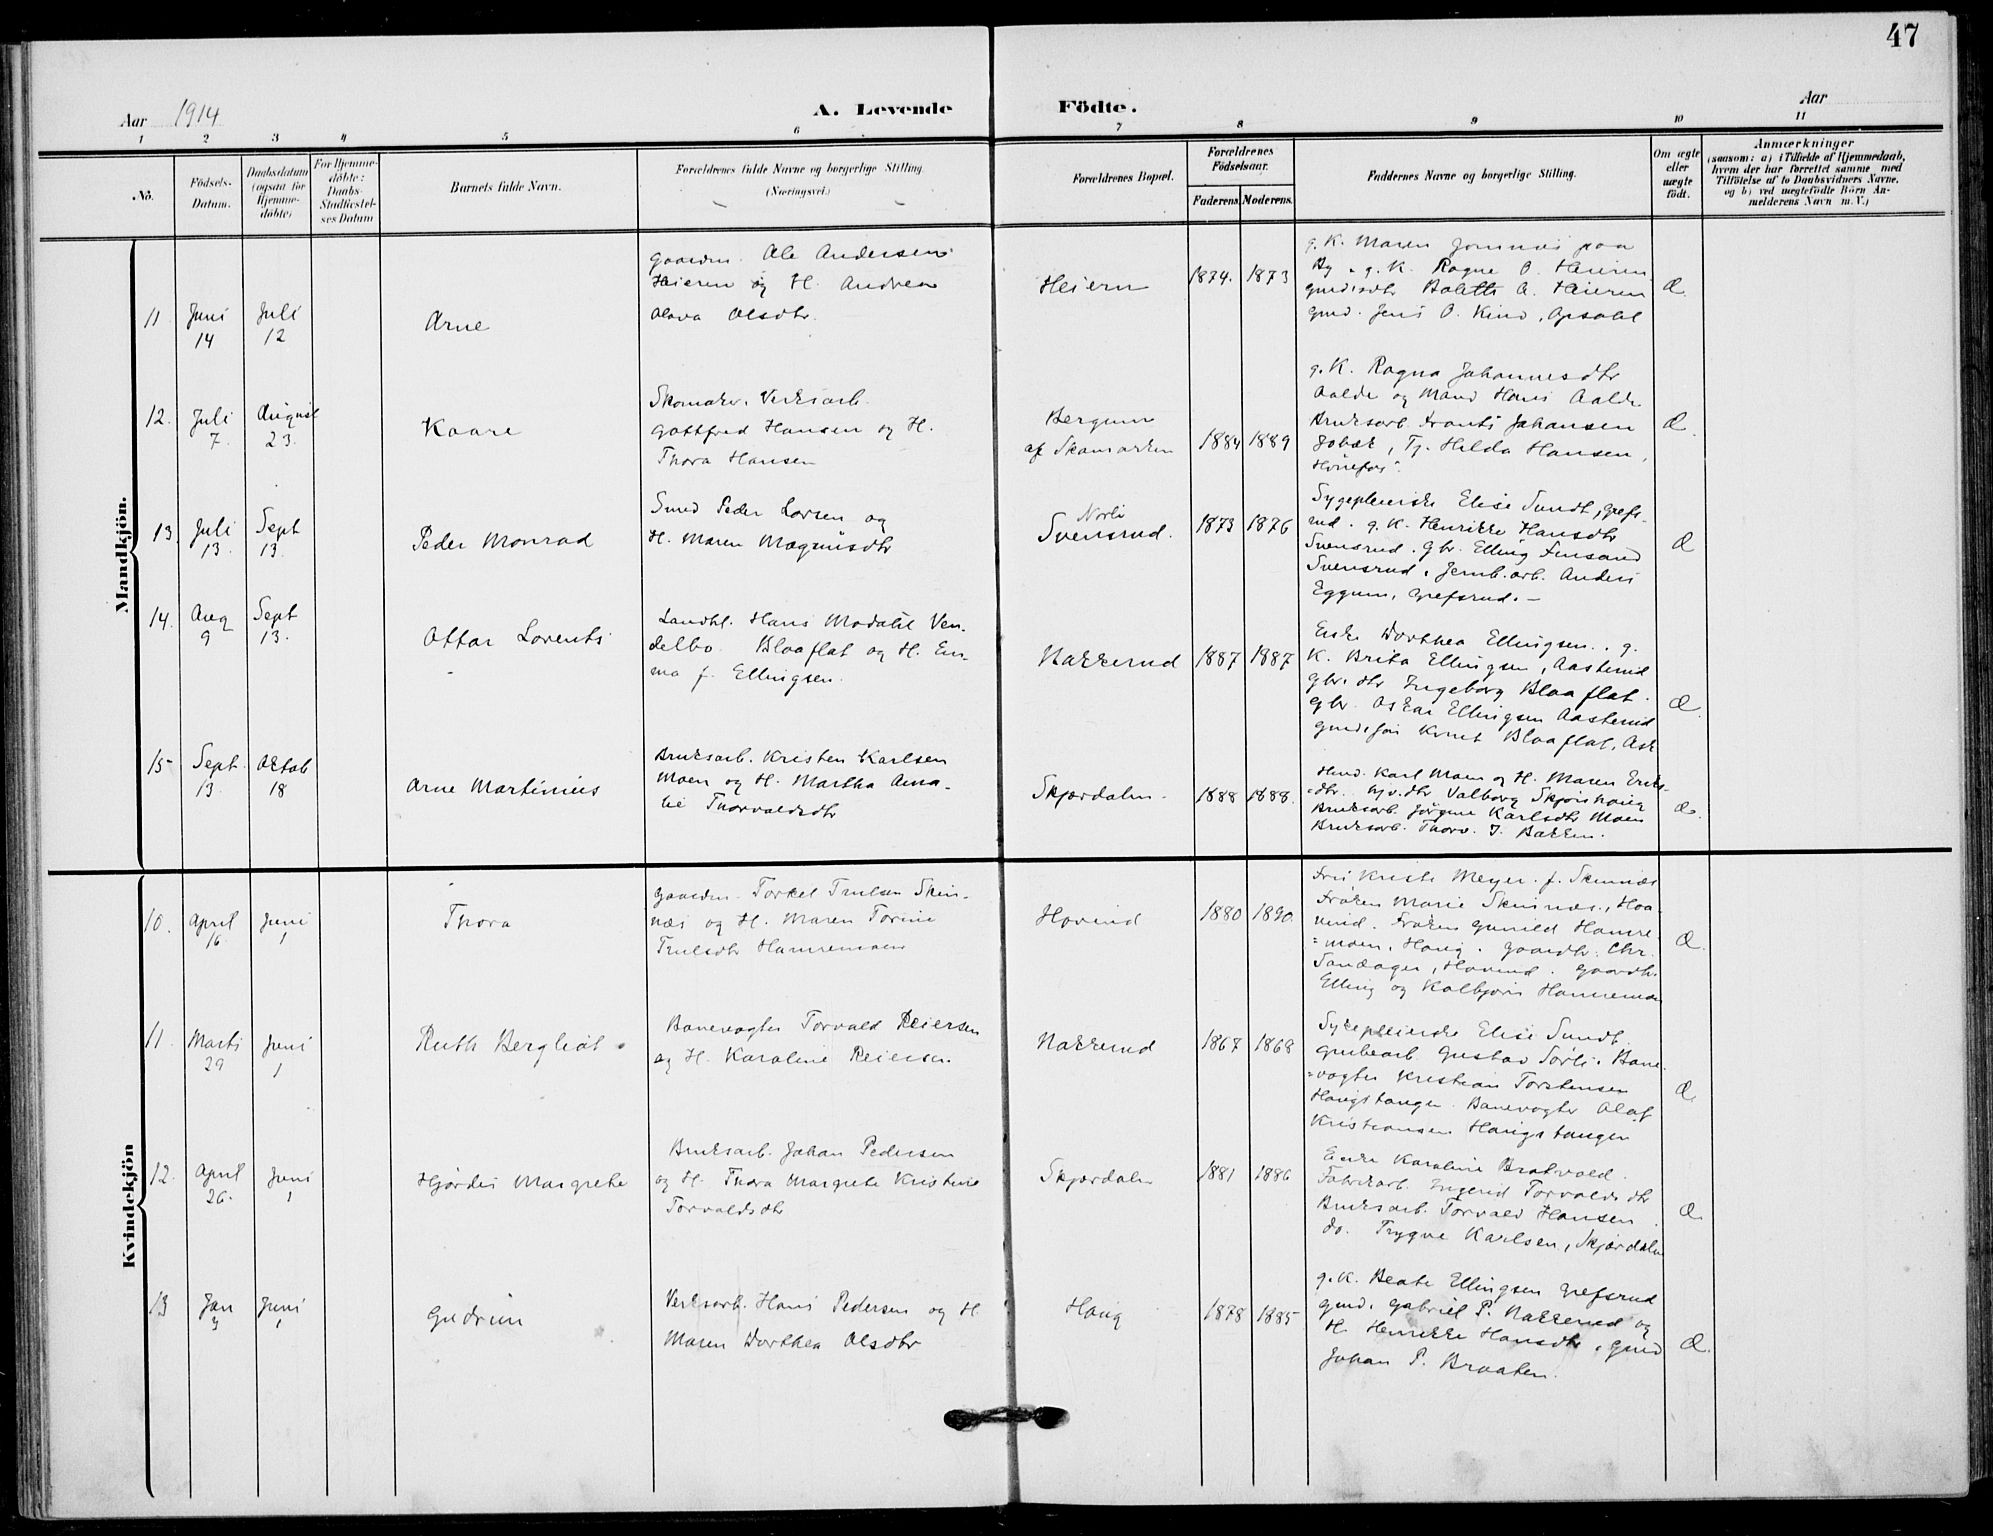 47
Aar 1914
A. Levende Födte.
Aar
1 2 3 4 5 6 7 8 9 10 11
No.
Födsels-
Datum.
Daabsdatum
(ogsaa for
Hjemme-
döbte)
For Hjemme-
döbte:
Daabs-
Stadfæstel-
ses Datum
Barnets fulde Navn.
Forældrenes fulde Navne og borgerlige Stilling
(Næringsvei.)
Forældrenes Bopæl.
Forældrenes
Födselsaar.
Faderens Moderens.
Faddernes Navne og borgerlige Stilling.
Om ægte
eller
uægte
født.
Anmærkninger
(saasom: a) i Tilfælde af Hjemmedaab,
hvem der har forrettet samme med
Tilföielse af to Daabsvidners Navne,
og b) ved uægtefödte Börn An-
melderens Navn m. V.)
Mandkjön.
11. Juni
14
Juli
12
Arne
Gaardm. Ole Andersen
Heieren og H. Andrea
Olava Olsdtr.
Heiern
1874. 1873
g. K. Maren paa
By. g. K. Ragne O. Heieren
gmdsdtr Bolette A. Heieren
gmd. Jens O. Kind, Opsahl
Æ.
12. Juli
7.
August
23.
Kaare
Skomaker. Verksarb.
Gottfred Hansen og H.
Thora Hansen
Bergum
af Skamarken
1884 1889
g. K. Ragna Johannesdtr
Aalde og Mand Hans Aalde
Bruksarb. Frants Johansen
Tj. Hilda Hansen,
Hönefos.
Æ.
13. Juli
13.
Sept
13.
Peder Monrad
Smed Peder Larsen og
H. Maren Magnusdtr
Norli
Svensrud.
1873 1876
Sygepleierske Elise Sundt, Grefs-
rud. g. K. Henrikke Hansdtr
Svensrud. Gbr. Elling Finsand
Svensrud, Jernb.arb. Anders
Eggum, Grefsrud. -
Æ
14. Aug
9
Sept
13.
Ottar Lorents
Landhl. Hans Modalt Ven-
delbo Blaaflat og H. Em-
ma f. Ellingsen.
Nakkerud
1887 1887
Enke Dorthea Ellingsen. g.
K. Brita Ellingsen, Aasterud
Gbr. dtr Ingeborg Blaaflat.
Gbr. Oskar Ellingsen Aasterud
Knut Blaaflat, Ask
Æ.
15 Sept
13.
Oktob
18
Arne Martinius
Bruksarb. Kristen Karlsen
Moen og H. Martha Ama-
lie Thorvaldsdtr
Skjærdalen.
1888 1888.
Hmd. Karl Moen og H. Maren Erik-
sdtr. Valborg Skjörshaug
Bruksarb. Jörgine Karlsdtr Moen
Bruksarb. Thorv. J. Bakken.
Æ.
Kvindekjön
10. April
16.
Juni
1
Thora
Gaardm. Torkel Trulsen Skin-
næs og H. Maren Torine
Trulsdtr Hamremoen
Hovind
1880 1890.
Fru Kristi Meyer. f. Skinnæs
Fröken Marie Skinnæs, Ho-
vind. Fröken Gunild Hamre-
moen, Haug. Gaardbr. Chr.
Sandager, Hovind. Gaardbr.
Elling og Kolbjörn Hamremoen
Æ.
11. Marts
29
Juni
1
Ruth Bergliot.
Banevogter Torvald Reiersen
og H. Karoline Reiersen.
Nakkerud
1867 1868
Sykepleierske Elise Sundt.
Grubearb. Gustav Sörli. Bane-
vogter Kristian Torstensen
Haugstangen. Banevogter Olaf
Kristiansen Haugstangen
Æ.
12. April
26.
Juni
1
Hjördis Margrethe
Bruksarb. Johan Pedersen
og H. Thora Margrete Kristine
Torvaldsdtr
Skjærdalen
1881 1886
Enke Karoline Bratvold.
Fabrikarb. Ingerid Torvaldsdtr
Bruksarb. Torvald Hansen
do. Trygve Karlsen, Skjærdalen
Æ.
13 Jan
3
Juni
1
Gudrun
Verksarb. Hans Pedersen og H
Maren Dorthea Olsdtr
Haug
1878 1885
g. K. Beate Ellingsen Grefsrud
gmd. Gabriel P. Nakkerud og
H. Henrikke Hansdtr, gmd
Johan P. Braaten.
Æ.